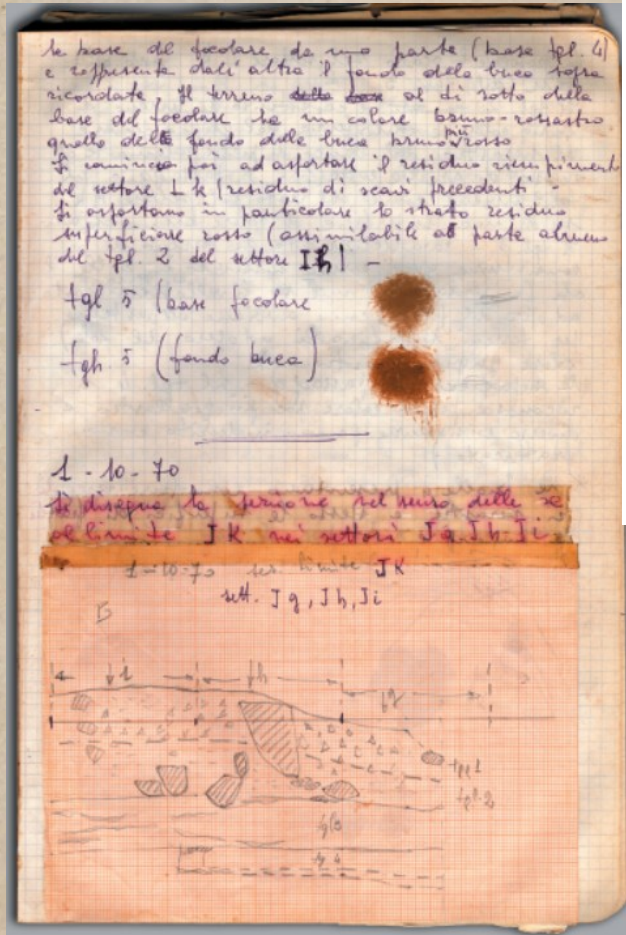 la base del focolare da una parte (base tgl. 4)
e rappresenta dall'altra il fondo della buca sopra
ricordata. Il terreno al di sotto della
base del focolare ha un colore bruno-rossastro
quello del fondo della buca bruno più rosso
Si comincia poi ad asportare il residuo riempimento
del settore I k (residuo di scavi precedenti -
Si asportano in particolare lo strato residuo
superficiale rosso (assimilabile a parte almeno
del tgl. 2 del settore I h) -
tgl 5 (base focolare
tgl 5 (fondo buca)
1 - 10 - 70
Si disegna la sezione nel senso delle
al limite JK nei settori Jg, Jh, Ji
1-10-70 sez. limite JK
sett. Jg, Jh, Ji
i h g
tgl 1
tgl 2
tgl 3
tg 4